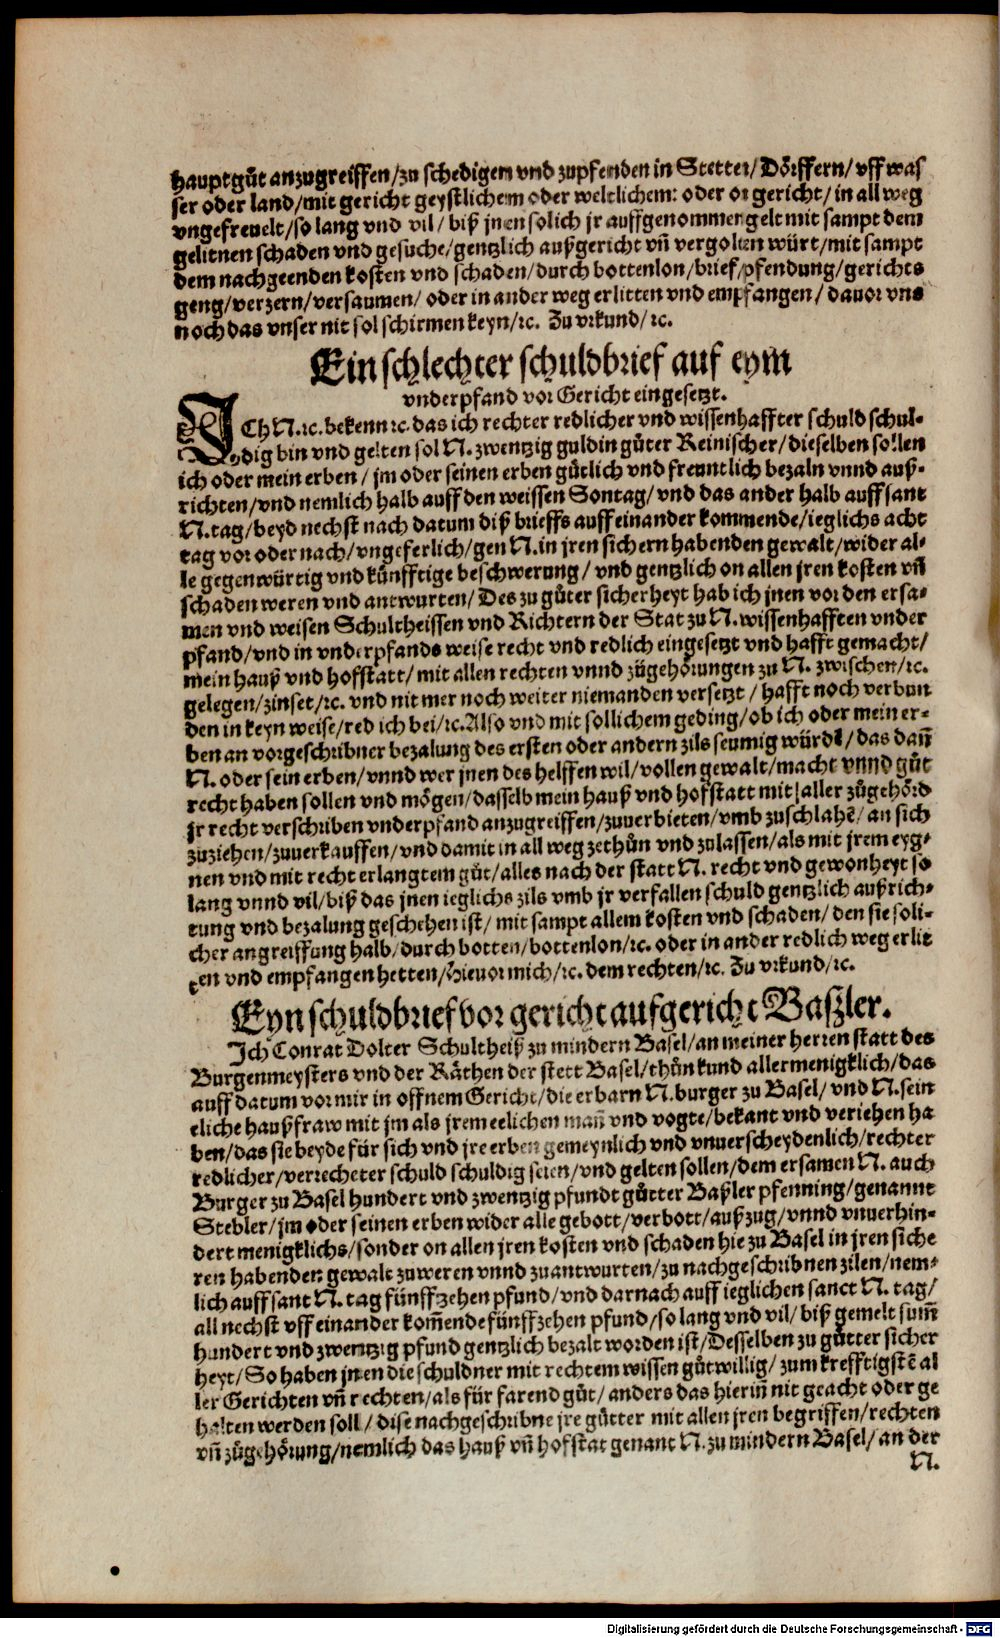 hauptgůt anzugreiffen/zu schedigen vnd zupfenden in Stetten/Dörffern/vff was
ser oder land/mit gericht geystlichem oder weltlichem: oder on gericht/in all weg
vngefreuelt/so lang vnd vil/ biß jnen solich jr auffgenommen gelt mit sampt dem
gelitnen schaden vnd gesuche/gentzlich außgericht vñ vergolten würt/mit sampt
dem nachgeenden kosten vnd schaden/durch bottenlon/brief/pfendung/gerichts
geng/verzern/versaumen/ oder in ander weg erlitten vnd empfangen/ dauor vns
noch das vnser nit sol schirmen keyn/ꝛc. Zu vrkund/ꝛc.
Ein schlechter schuldbrief auf eym
vnderpfand vor Gericht eingesetzt.
ICh N.ꝛc.bekenn ꝛc.das ich rechter redlicher vnd wissenhaffter schuld schul-
dig bin vnd gelten sol N.zwentzig guldin gůter Reinischer/dieselben sollen
ich oder mein erben/ jm oder seinen erben gůtlich vnd freuntlich bezaln vnnd auß-
richten/vnd nemlich halb auff den weissen Sontag/ vnd das ander halb auff sant
N.tag/beyd nechst nach datum diß brieffs auff einander kommende/ieglichs acht
tag vor oder nach/vngeferlich/gen N.in jren sichern habenden gewalt/wider al-
le gegenwürtig vnd künfftige beschwerung/ vnd gentzlich on allen jren kosten vñ
schaden weren vnd antwurten/ Des zu gůter sicherheyt hab ich jnen vor den ersa-
men vnd weisen Schultheissen vnd Richtern der Stat zu N.wissenhafften vnder
pfand/vnd in vnderpfands weise recht vnd redlich eingesetzt vnd hafft gemacht/
mein hauß vnd hofstatt/ mit allen rechten vnnd zůgehörungen zu N. zwischen/ꝛc.
gelegen/zinset/ꝛc. vnd nit mer noch weiter niemanden versetzt/ hafft noch verbun
den in keyn weise/red ich bei/ꝛc.Also vnd mit sollichem geding/ob ich oder mein er-
ben an vorgeschribner bezalung des ersten oder andern zils seumig würdē/das dañ
N. oder sein erben/vnnd wer jnen des helffen wil/vollen gewalt/macht vnnd gůt
recht haben sollen vnd mögen/dasselb mein hauß vnd hofstatt mit aller zůgehörd
jr recht verschriben vnderpfand anzugreiffen/zuuerbieten/vmb zuschlahē/an sich
zuziehen/zuuerkauffen/vnd damit in all weg zethůn vnd zulassen/als mit jrem eyg-
nen vnd mit recht erlangtem gůt/alles nach der statt N. recht vnd gewonheyt so
lang vnnd vil/biß das jnen ieglichs zils vmb jr verfallen schuld gentzlich außrich-
tung vnd bezalung geschehen ist/ mit sampt allem kosten vnd schaden/ den sie soli-
cher angreiffung halb/durch botten/bottenlon/ꝛc. oder in ander redlich weg erlit
ten vnd empfangen hetten/Hieuor mich/ꝛc. dem rechten/ꝛc. Zu vrkund/ꝛc.
Eyn schuldbrief vor gericht aufgericht Baszler.
Ich Conrat Dolter Schultheiß zu mindern Basel/an meiner herren statt des
Burgenmeysters vnd der Räthen der stett Basel/thůn kund allermenigklich/das
auff datum vor mir in offnem Gericht/die erbarn N.burger zu Basel/ vnd N.sein
eliche haußfraw mit jm als jrem eelichen mañ vnd vogte/bekant vnd veriehen ha
ben/das sie beyde für sich vnd jre erben gemeynlich vnd vnuerscheydenlich/rechter
redlicher/verrecheter schuld schuldig seien/vnd gelten sollen/dem ersamen N. auch
Burger zu Basel hundert vnd zwentzig pfundt gůtter Baßler pfenning/genannt
Stebler/jm oder seinen erben wider alle gebott/verbott/außzug/vnnd vnuerhin-
dert menigklichs/sonder on allen jren kosten vnd schaden hie zu Basel in jren siche
ren habenden gewalt zuweren vnnd zu antwurten/zu nachgeschribnen zilen/nem-
lich auff sant N.tag fünffzehen pfund/vnd darnach auff ieglichen sanct N. tag/
all nechst vff einander kom̄ende fünffzehen pfund/so lang vnd vil/ biß gemelt sum̄
hundert vnd zwentzig pfund gentzlich bezalt worden ist/Desselben zu gůtter sicher
heyt/So haben jnen die schuldner mit rechtem wissen gůtwillig/ zum krefftigstē al
ler Gerichten vñ rechten/als für farend gůt/ anders das hieriñ nit geacht oder ge
halten werden soll/ dise nachgeschribne jre gůtter mit allen jren begriffen/rechten
vñ zůgehörung/nemlich das hauß vñ hofstat genant N.zu mindern Basel/an der
N.
Digitalisierung gefördert durch die Deutsche Forschungsgemeinschaft - DFG